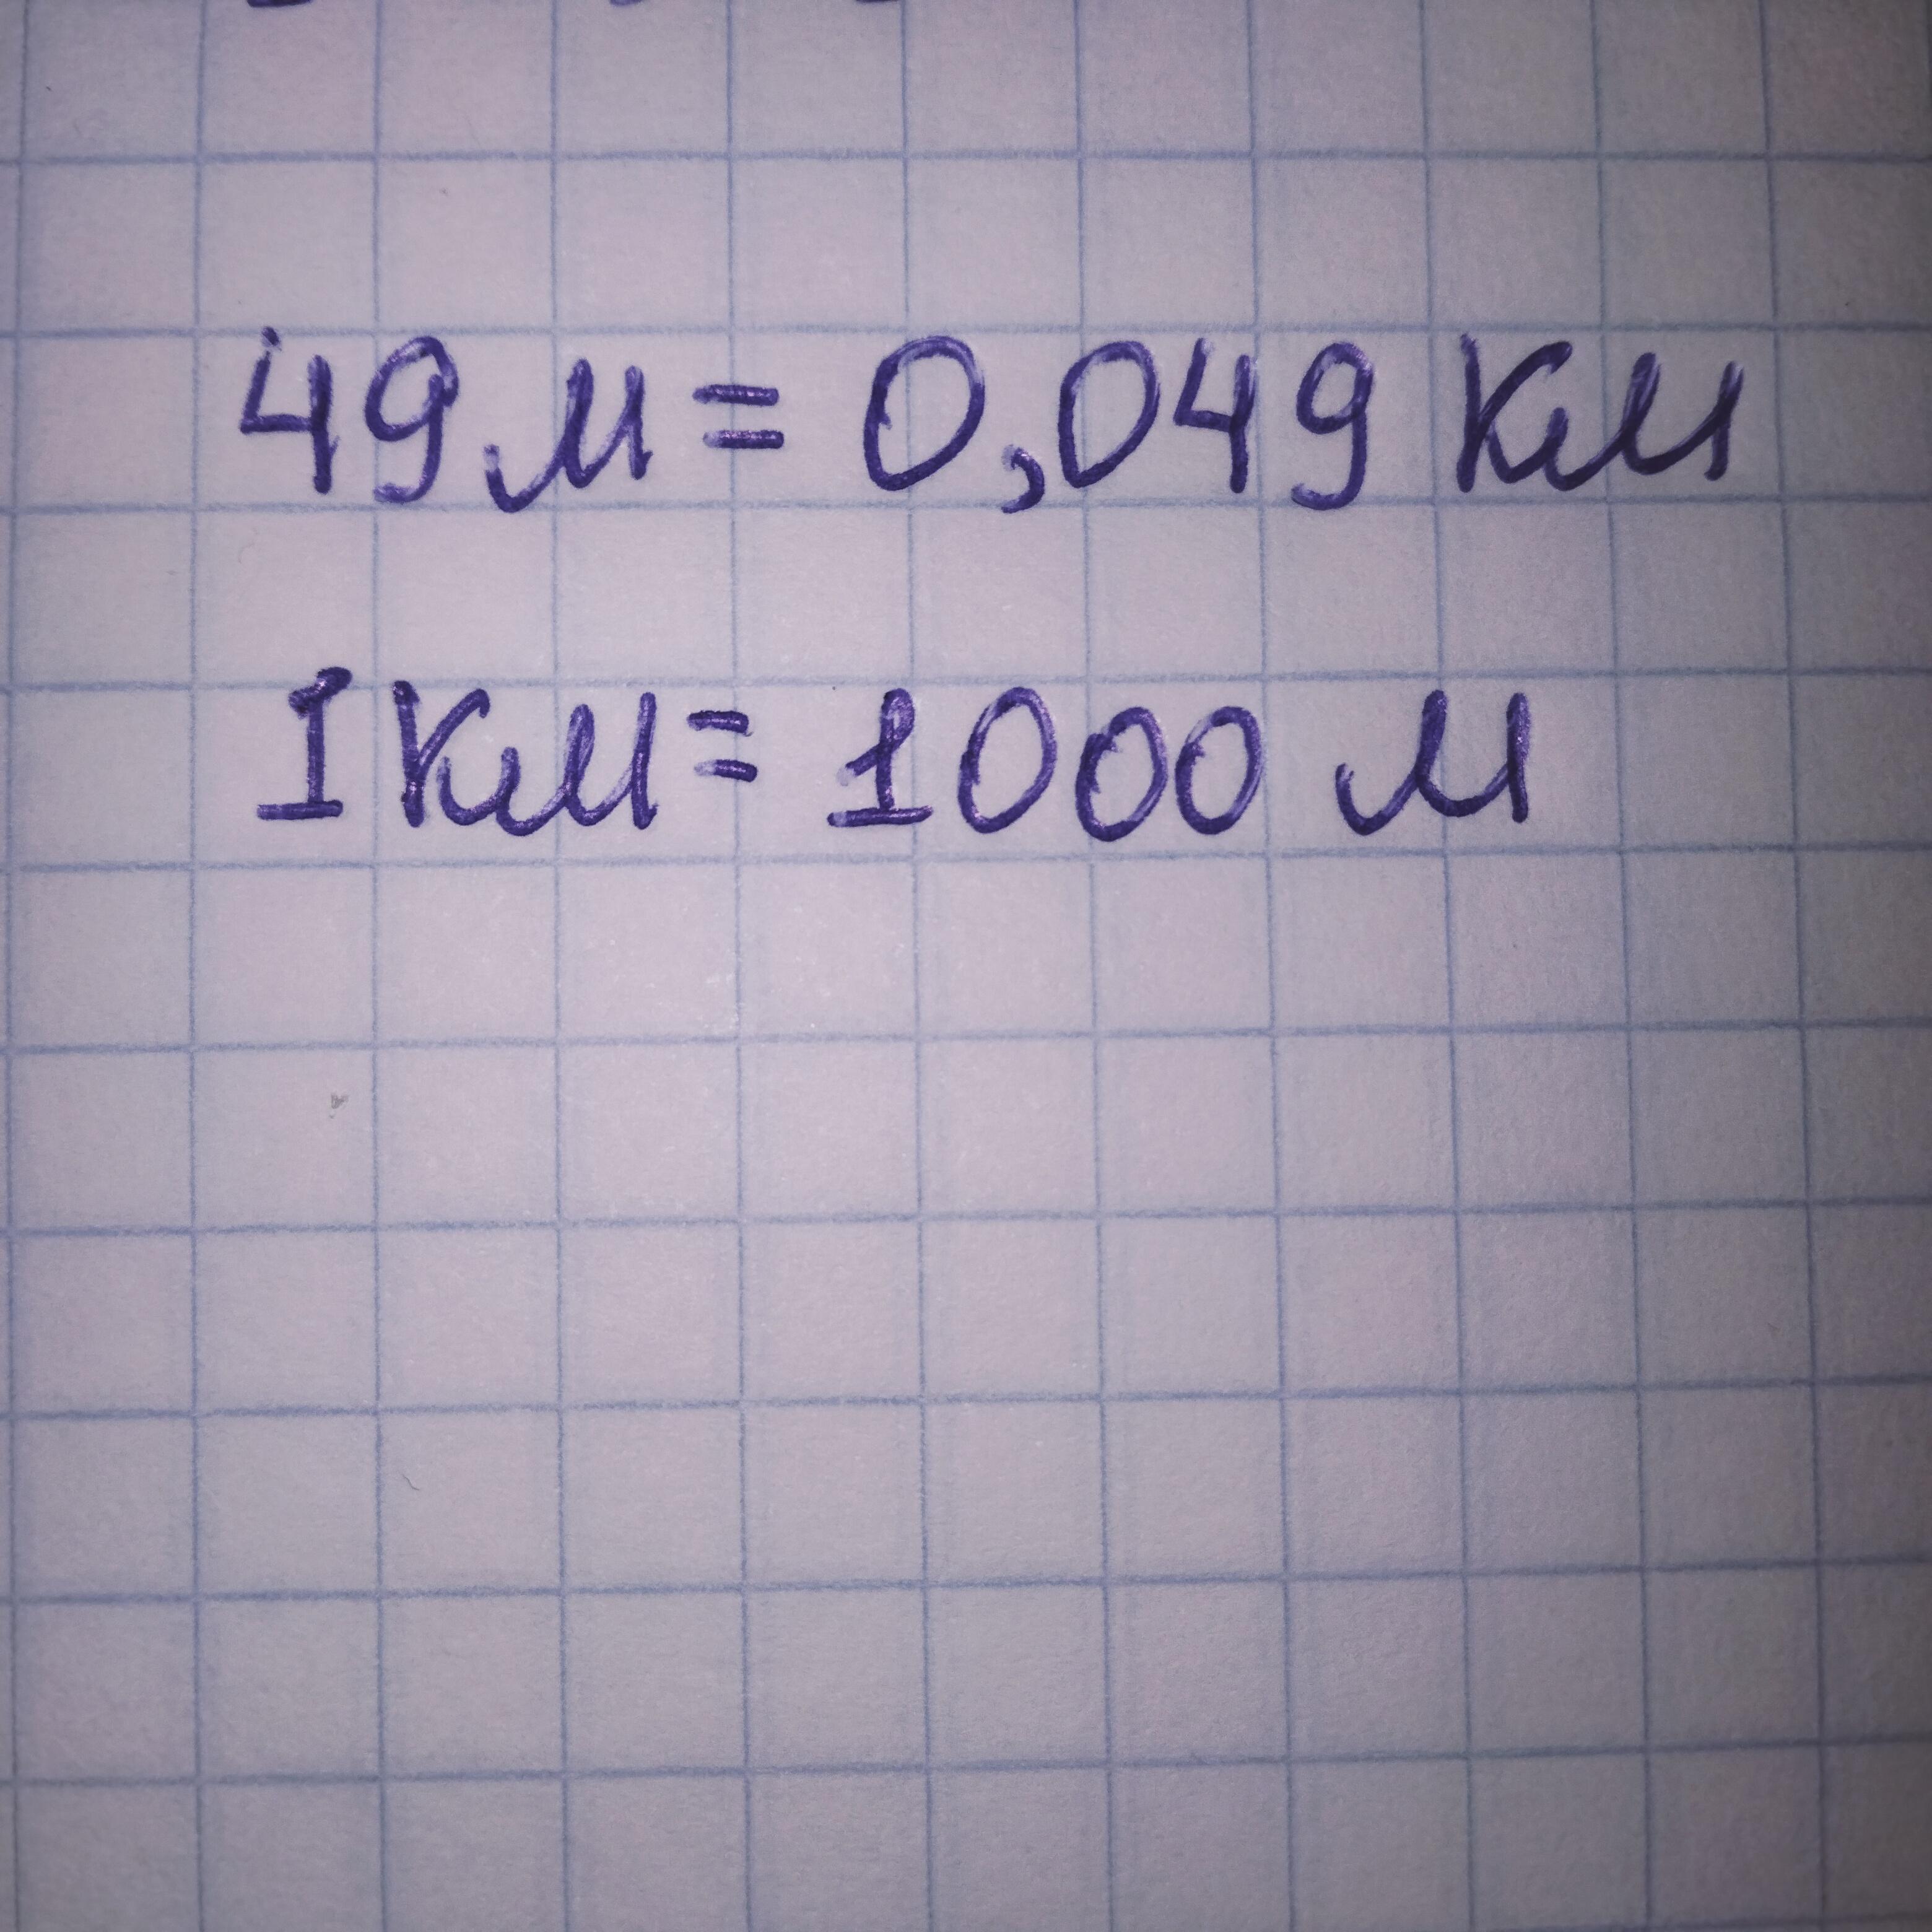 49 м = 0,049 км
1 км = 1000 м